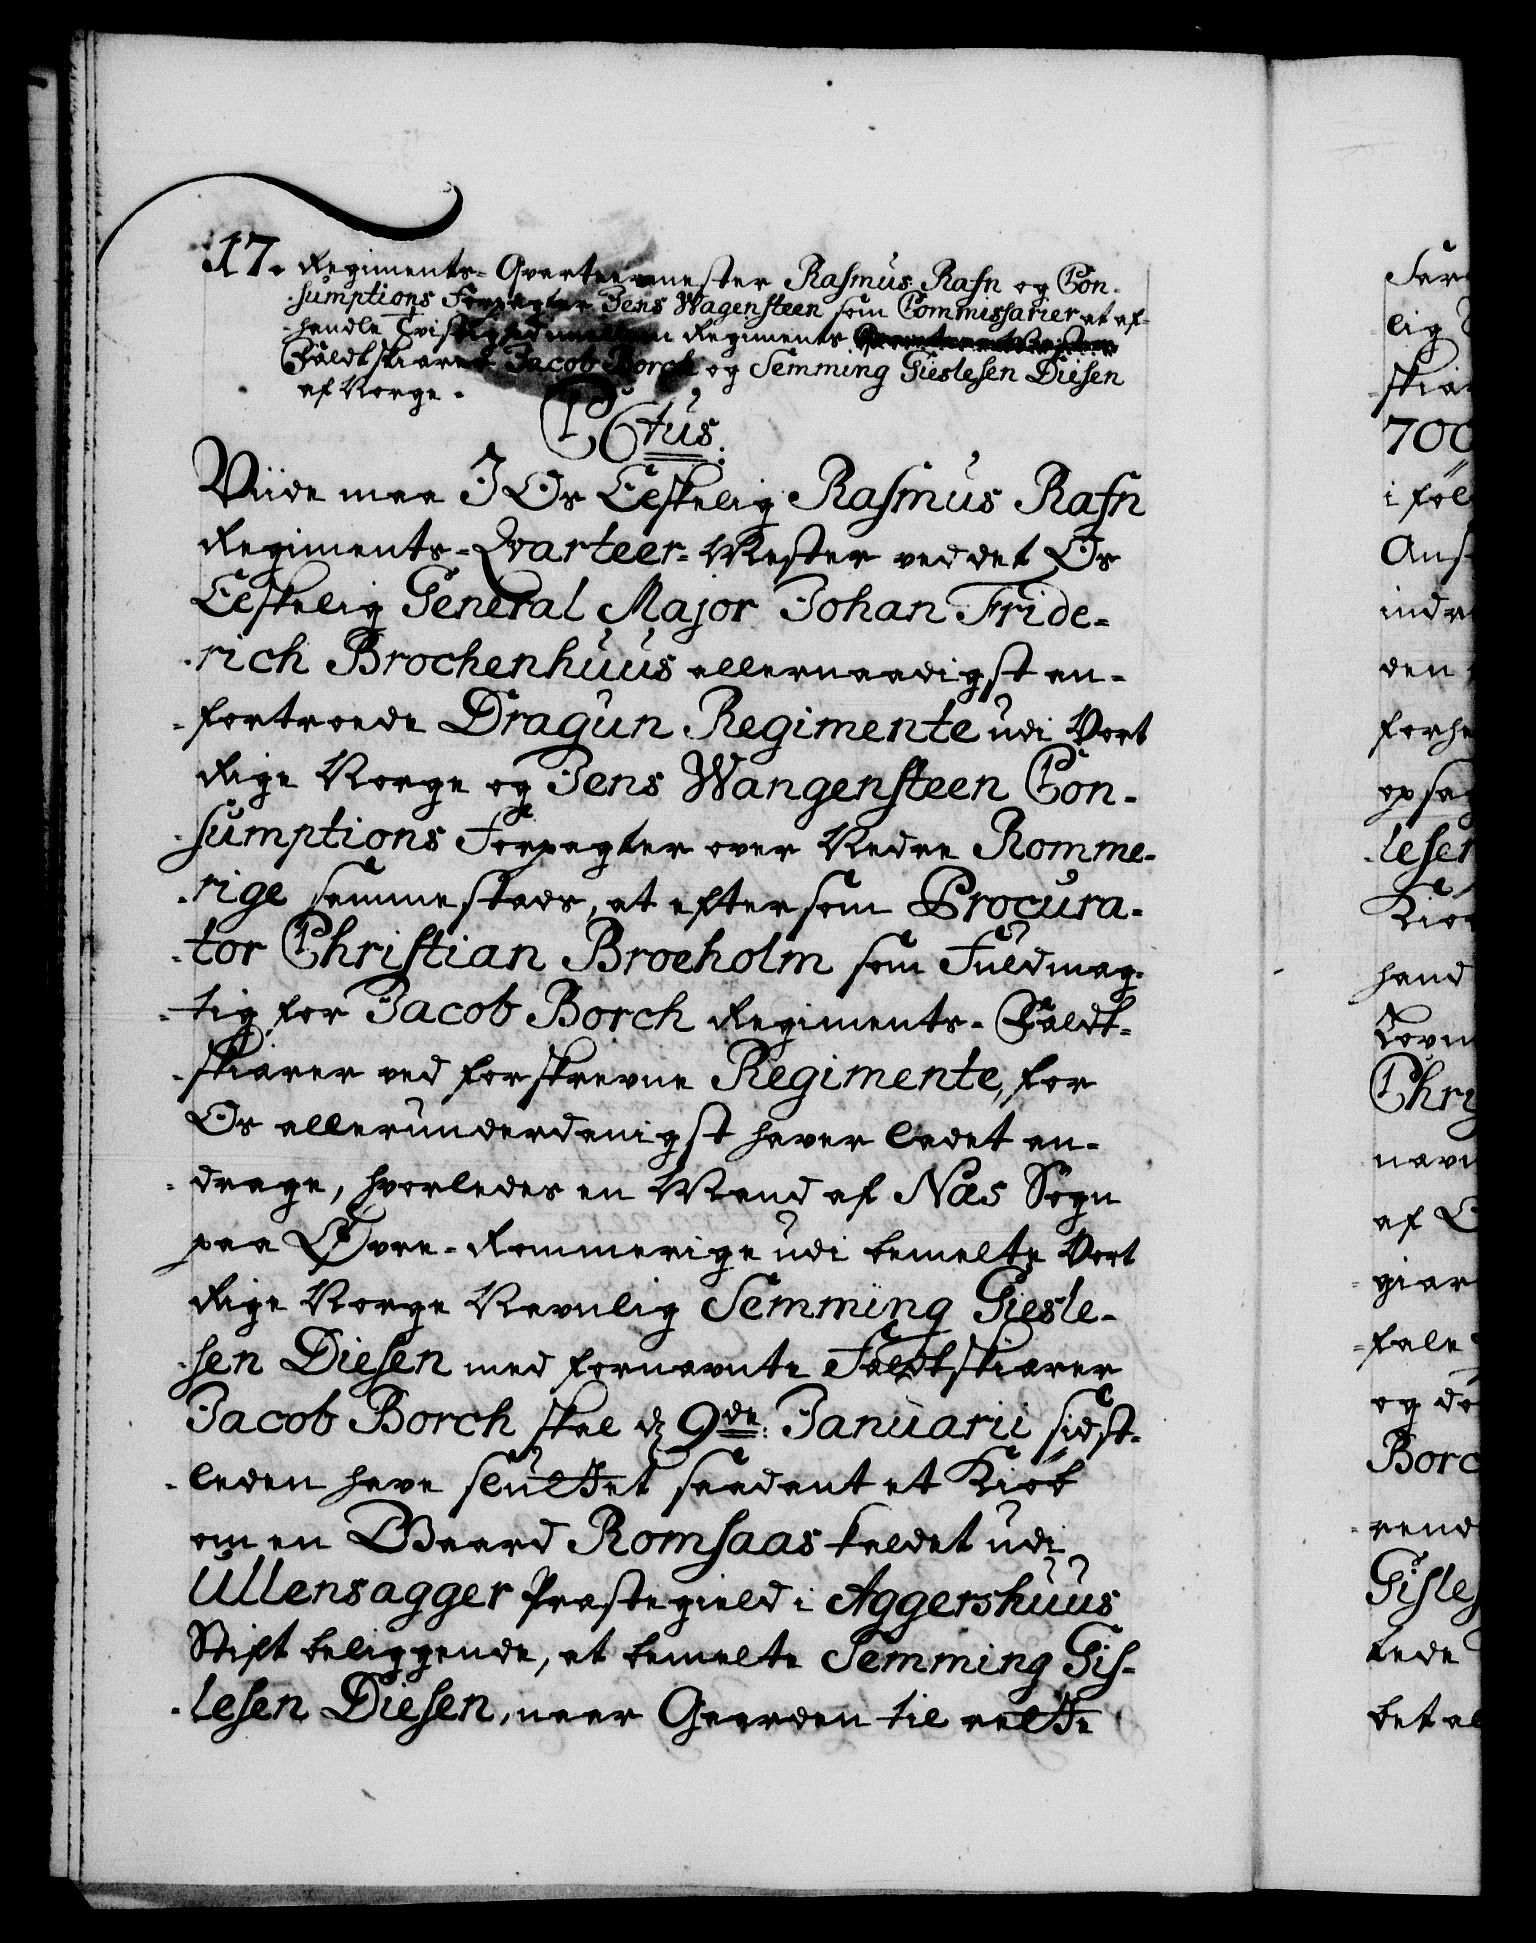 17. Regiments-Qvarteermester Rasmus Rafn og Con-
-sumptions Forpagter Jens Wagensteen som Commissarier at af-
-handle Tvistighed imellem Regiments
Fældtskiærer Jacob Borch og Semming Gieslesen Diesen
af Norge.
C6tus:
Viide maa I Os Elskelig Rasmus Rafn
Regiments-Qvarteer-Mester ved det Os
Elskelig General Major Johan Fride-
-rich Brochenhuus allernaadigst an-
-fortroede Dragun Regimente udi Vort
Rige Norge og Jens Wangensteen Con-
-sumptions Forpagter over Nedre Romme-
-rige sammestæds, at eftersom Procura-
-tor Christian Broeholm som Fuldmæg-
-tig for Jacob Borch Regiments-Fældt-
-skiærer ved forskrevne Regimente, for
Os allerunderdanigst haver ladet an-
-drage, hvorledes en Mand af Næs Sogn
paa Øvre-Rommerige udi bemelte Vort
Rige Norge Navnlig Semming Giesle-
-sen Diesen med fornævnte Fældtskiærer
Jacob Borch skal d 9de: Januarii sidst-
-leden have sluttet saadant et Kiøb
om en Gaard Romsaas kaldet udi
Ullensagger Præstegield i Aggershuus
Stift beliggende, at bemelte Semming Gis-
-lesen Diesen, naar Gaarden til rette
700
i føl
den
af
og
Borc